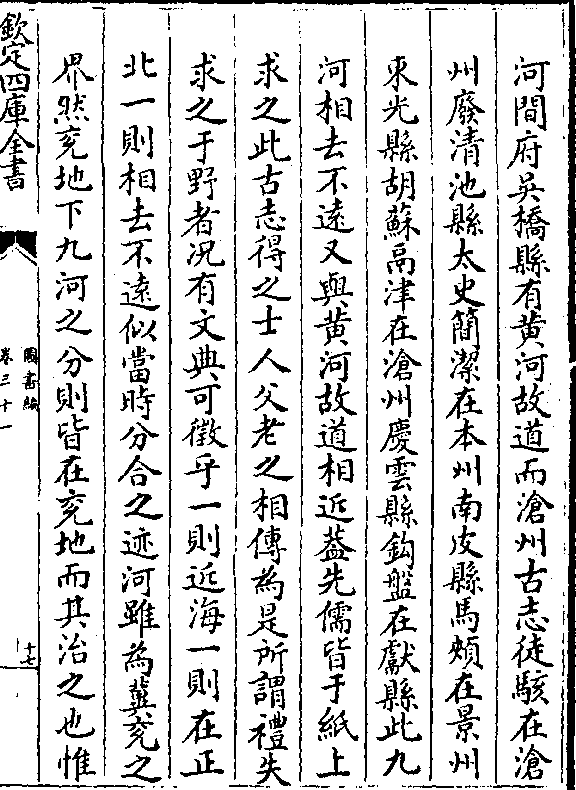 河間府吳橋縣有黄河故道而滄州古志徒駭在滄
州廢清池縣太史簡潔在本州南皮縣馬頰在景州
東光縣胡蘇鬲津在滄州慶雲縣鈎盤在獻縣此九
河相去不遠又與黄河故道相近葢先儒皆于紙上
求之此古志得之士人父老之相傳為是所謂禮失
求之于野者况有文典可徵乎一則近海一則在正
北一則相去不遠似當時分合之迹河雖為冀兖之
界然兖地下九河之分則皆在兖地而其治之也惟
欽定四庫全書
圖書編
卷三十一
十七